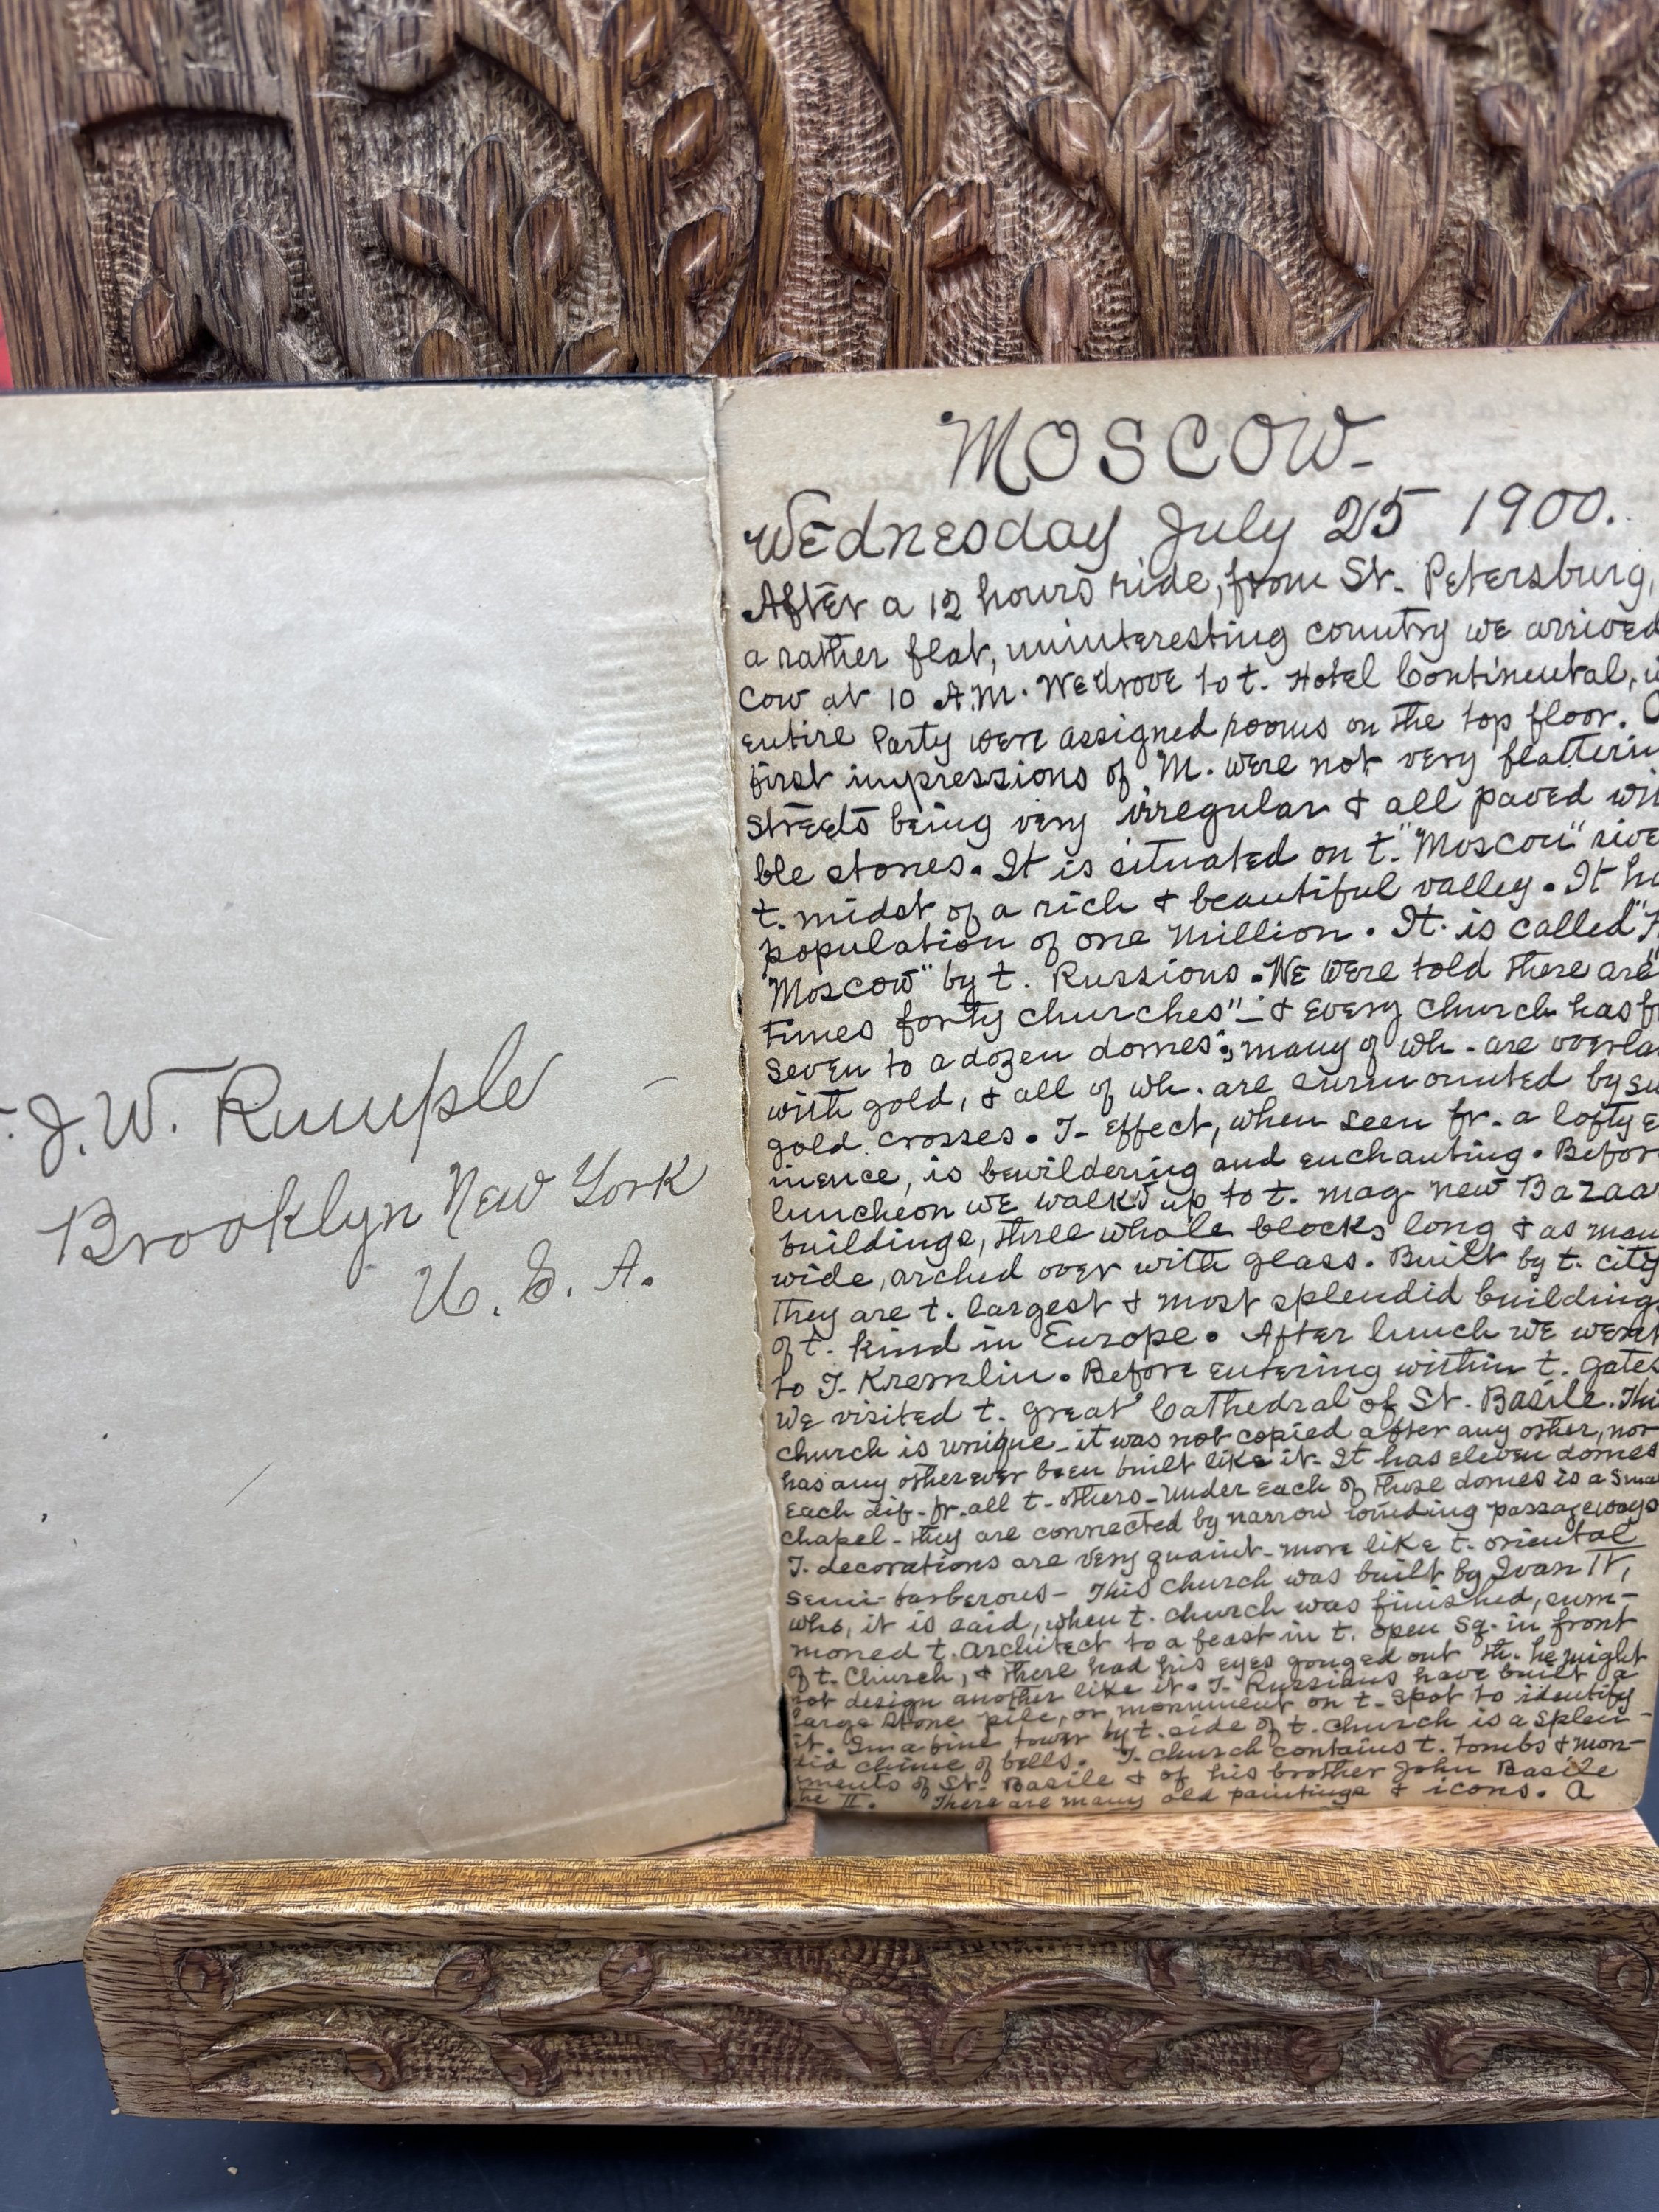 J. W. Rumple
Brooklyn New York
U. S. A.
MOSCOW-
Wednesday July 25 1900.
After a 12 hours ride, from St. Petersburg,
a rather flat, uninteresting country we arrived
cow at 10 A.M. We drove to t. Hotel Continental,
entire Party were assigned rooms on the top floor.
first impressions of M. were not very flatterin
streets being very irregular & all paved wi
ble stones. It is situated on t. "Moscou" rive
t. midst of a rich & beautiful valley. It ha
population of one Million. It is called "
Moscow" by t. Russions. We were told there are "
times forty churches" - & every church has f
seven to a dozen domes; many of wh. are overla
with gold, & all of wh. are surmounted by su
gold crosses. T- effect, when seen fr. a lofty e
inence, is bewildering and enchanting. Befor
luncheon we walk'd up to t. mag- new Bazaar
buildings, three whole blocks long & as man
wide, arched over with glass. Built by t. city
They are t. largest & most splendid buildings
of t. kind in Europe. After lunch we went
to T- Kremlin. Before entering within t. gates
We visited t. great Cathedral of St. Basile. Thi
church is unique - it was not copied after any other, nor
has any other ever been built like it- It has eleven domes
Each dif- fr. all t- others - Under each of these domes is a Sma
chapel - they are connected by narrow winding passageways
T- decorations are very quaint - more like t. oriental
semi-barberous - This church was built by Ivan IV,
who, it is said, when t. church was finished, sum-
moned t. architect to a feast in t. open Sq- in front
of t. Church, & there had his eyes gouged out th. he might
not design another like it. T- Russians have built a
large stone pile, or monument on t- spot to identify
it. In a fine tower by t. side of t. church is a splen-
did chime of bells. T- church contains t. tombs & mon-
uments of St. Basile & of his brother John Basile
the II. There are many old paintings & icons. A